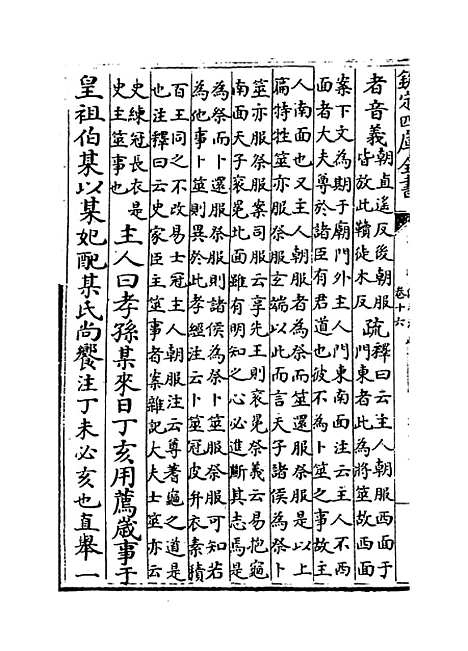 欽定四庫全書
卷十六
者音義朝直遙反後朝服
皆放此韇徒木反
疏釋曰云主人朝服西面于
門東者此為將筮故西面
案下文為期于廟門外主人門東南面注云主人不西
面者大夫尊於諸臣有君道也彼不為卜筮之事故主
人南面也又主人朝服者為祭而筮還服祭服是以上
篇特牲筮亦服祭服玄端以此而言天子諸侯為祭卜
筮亦服祭服案司服云享先王則衮冕祭義云易抱龜
南面天子衮冕北面雖有明知之心必進斷其志焉是
為祭而卜還服祭服則諸侯為祭卜筮服祭服可知若
為他事卜筮則異於此孝經注云卜筮冠皮弁衣素積
百王同之不改易士冠主人朝服注云尊蓍龜之道是
也注釋曰云史家臣主筮事者案雜記大夫士筮亦云
史練冠長衣是
史主筮事也
主人曰孝孫某來日丁亥用薦歲事于
皇祖伯某以某妃配某氏尚饗注丁未必亥也直舉一